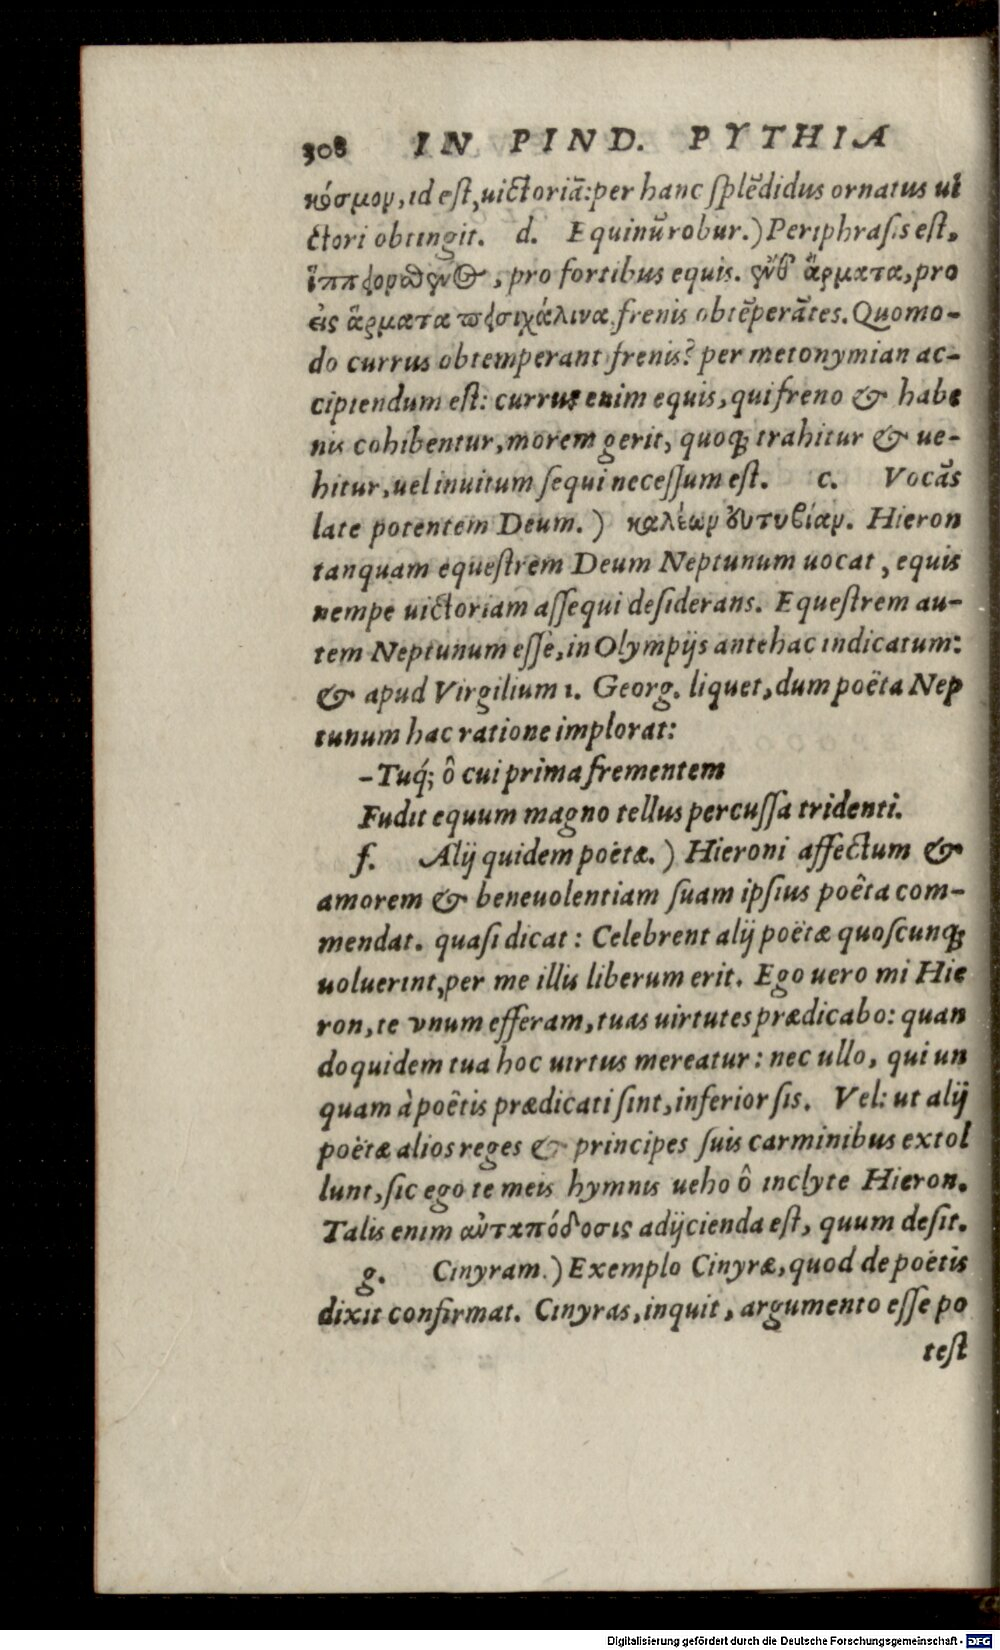 308 IN PIND. PYTHIA
κόσμον, id est, uictoriā: per hanc splēdidus ornatus ui
ctori obtingit. d. Equinū robur.) Periphrasis est,
, pro fortibus equis. ἅρματα, pro
εἰς ἅρματα πεισιχάλινα, frenis obtēperātes. Quomo-
do currus obtemperant frenis? per metonymian ac-
cipiendum est: currus enim equis, qui freno & habe
nis cohibentur, morem gerit, quoq; trahitur & ue-
hitur, uel inuitum sequi necessum est. c. Vocās
late potentem Deum.) καλέων εὐρυβίαν. Hieron
tanquam equestrem Deum Neptunum uocat, equis
nempe uictoriam assequi desiderans. Equestrem au-
tem Neptunum esse, in Olympijs antehac indicatum:
& apud Virgilium 1. Georg. liquet, dum poëta Nep
tunum hac ratione implorat:
-Tuq́; ô cui prima frementem
Fudit equum magno tellus percussa tridenti.
f. Alij quidem poëtæ.) Hieroni affectum &
amorem & beneuolentiam suam ipsius poêta com-
mendat. quasi dicat: Celebrent alij poëtæ quoscunq;
uoluerint, per me illis liberum erit. Ego uero mi Hie
ron, te vnum efferam, tuas uirtutes prædicabo: quan
doquidem tua hoc uirtus mereatur: nec ullo, qui un
quam à poêtis prædicati sint, inferior sis. Vel: ut alij
poëtæ alios reges & principes suis carminibus extol
lunt, sic ego te meis hymnis ueho ô inclyte Hieron.
Talis enim ἀνταπόδοσις adijcienda est, quum desit.
g. Cinyram.) Exemplo Cinyræ, quod de poëtis
dixit confirmat. Cinyras, inquit, argumento esse po
test
Digitalisierung gefördert durch die Deutsche Forschungsgemeinschaft - DFG